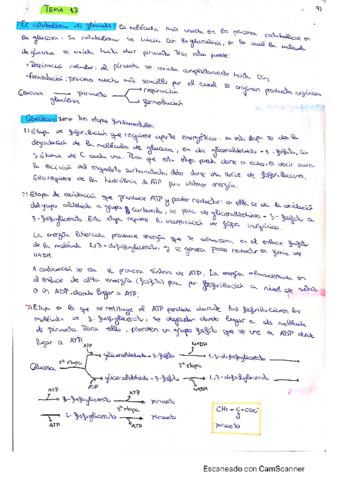 TEMA 13
El catabolismo de glúcidos: La molécula más usada en los procesos catabólicos es
la glucosa. Su catabolismo se inicia con la glucólisis, en la cual la molécula
de glucosa se oxida hasta dar piruvato. Tras esto puede:
· Respiración celular: el piruvato se oxida completamente hasta CO2
· Fermentación: proceso mucho más sencillo por el cual se originan productos orgánicos
Glucosa → piruvato → respiración
glucólisis → fermentación
Glucólisis: tiene tres etapas fundamentales:
1) Etapa de fosforilación que requiere aporte energético: en esta etapa se da la
degradación de la molécula de glucosa, en dos gliceraldehído-3-fosfato, con
3 átomos de C cada una. Para que esta etapa pueda llevarse a cabo, es decir ocurra
la escisión del esqueleto carbonado, debe darse una serie de fosforilaciones.
Esto requiere de la hidrólisis de ATP para obtener energía.
2) Etapa de oxidación que produce ATP y poder reductor: en ella se da la oxidación
del grupo aldehído a grupo carboxilo, se pasa de gliceraldehído-3-fosfato a
3-fosfoglicerato. Esta etapa requiere la incorporación de fósforo inorgánico.
La energía liberada produce energía que se almacena en el enlace fosfato
de la molécula 1,3-difosfoglicerato, y se genera poder reductor en forma de
NADH.
A continuación se da la primera síntesis de ATP. La energía almacenada en
el enlace de alta energía (fosfato) pasa por fosforilación a nivel de sustrato
a un ADP, dando lugar a ATP.
3) Etapa en la que se restituye el ATP perdido durante las fosforilaciones: las
moléculas de 3-fosfoglicerato, se degradan dando lugar a dos moléculas
de piruvato. Para ello, pierden un grupo fosfato que se une a ADP dando
lugar a ATP.
ATP
NADH
1ª etapa
gliceraldehído-3-fosfato → 1,3-difosfoglicerato
Glucosa
2ª etapa
gliceraldehído-3-fosfato → 1,3-difosfoglicerato
ATP
NADH
ATP
ATP
3-fosfoglicerato → piruvato
3ª etapa
3-fosfoglicerato → piruvato
ATP
ATP
CH3-C-COO-
O
piruvato
Escaneado con CamScanner